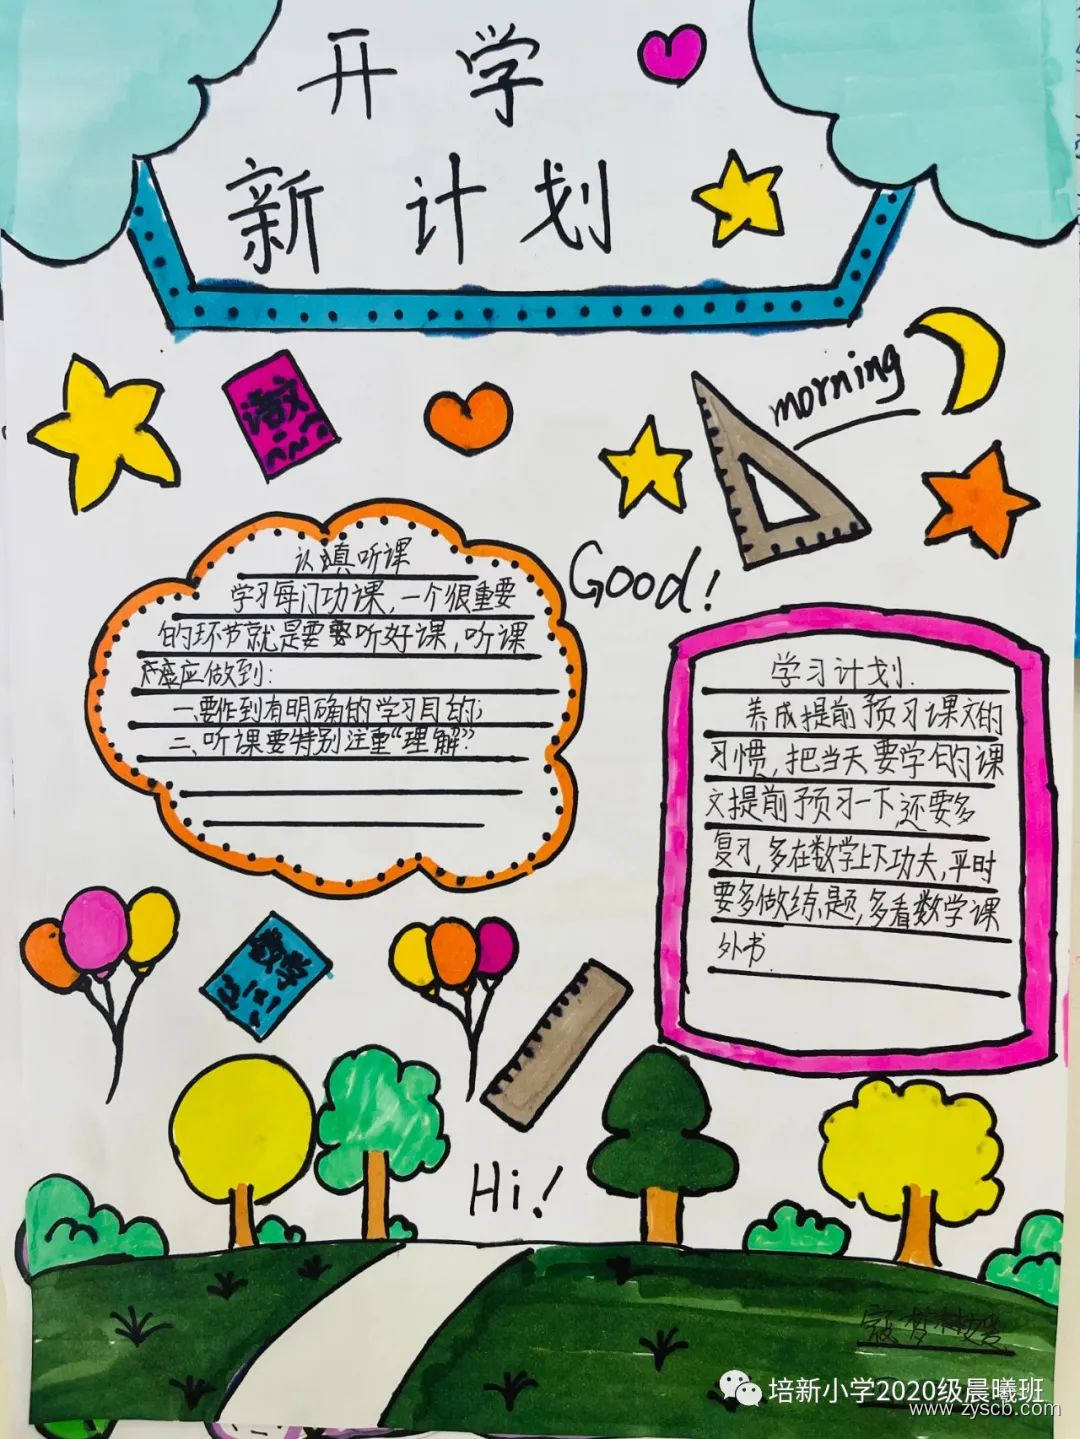 开学
新计划
语文
morning
Good!
认真听课
学习每门功课，一个很重要
的环节就是要听好课，听课
应做到：
一、要作到有明确的学习目的；
二、听课要特别注重“理解”.
学习计划.
养成提前预习课文的
习惯，把当天要学的课
文提前预习一下,还要多
复习,多在数学上下功夫,平时
要多做练习题,多看数学课
外书.
数学
Hi!
培新小学2020级晨曦班
www.zyscb.com